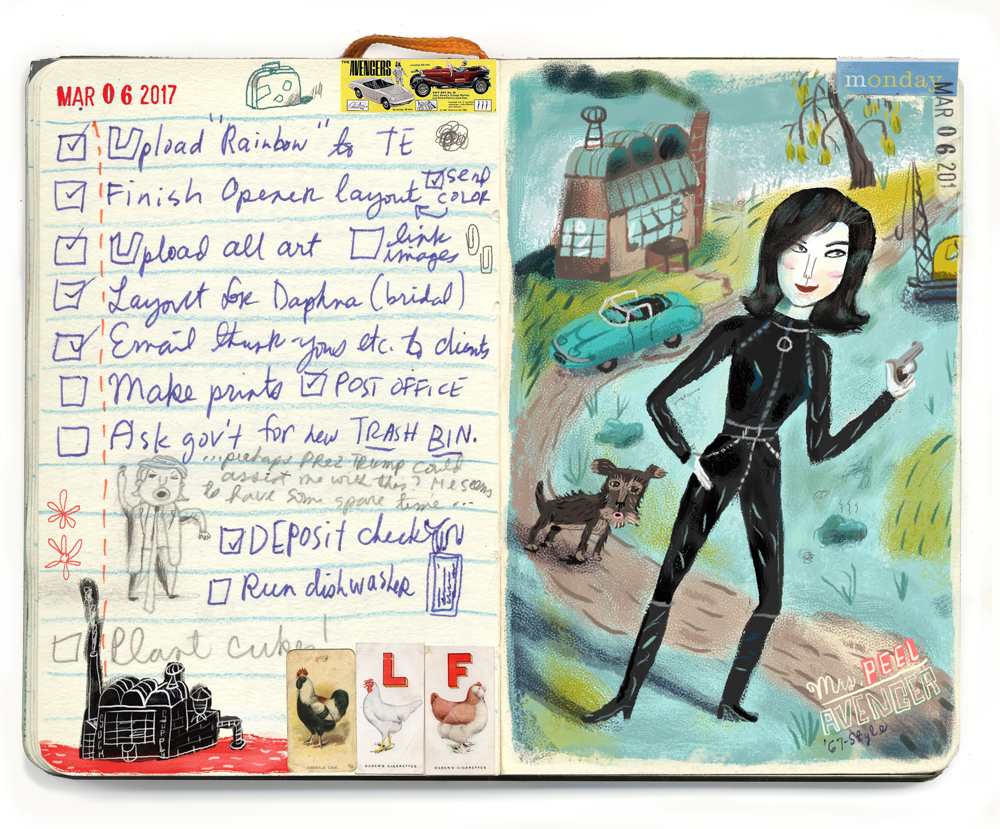 MAR 06 2017
THE AVENGERS
Upload "Rainbow" to TE
Finish Opener layout
send
COLOR
Upload all art
link
images
Layout for Daphna (bridal)
Email thank-yous etc. to clients
Make prints
POST OFFICE
Ask gov't for new TRASH BIN.
...perhaps PREZ TRUMP could
assist me with this? He seems
to have some spare time...
DEPOSIT check
Run dishwasher
Plant cukes!
L
F
OGDEN'S CIGARETTES
OGDEN'S CIGARETTES
monday
MAR 06 201
Mrs. PEEL
AVENGER
'67-Style